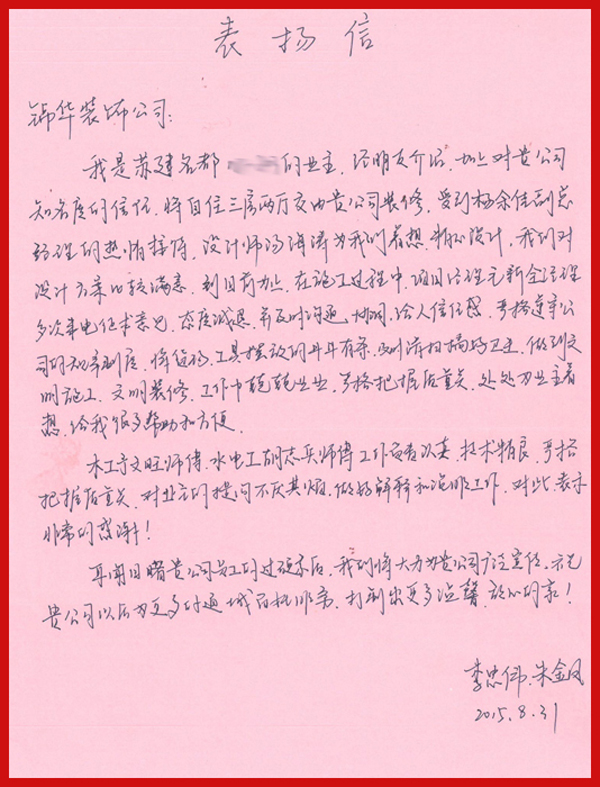 表扬信
锦华装饰公司:
我是苏建名都 的业主,经朋友介绍,加上对贵公司
知名度的信任,将自住三房两厅交由贵公司装修,受到杨余佳副总
经理的热情接待,设计师汤海涛为我们着想,精心设计,我们对
设计方案比较满意,到目前为止,在施工过程中,项目经理 经理
多次来电征求意见,态度诚恳,并及时沟通、协调,给人信任感,严格遵守公
司的规章制度,将货码、工具摆放的井井有条,及时清扫搞好卫生,做到文
明施工,文明装修,工作中兢兢业业,严格把握质量关,处处为业主着
想,给我很多帮助和方便。
木工 文旺师傅,水电工胡志兵师傅工作负责认真,技术精良,严格
把握质量关,对业主的提问不厌其烦,做好解释和说明工作,对此,表示
非常的感谢!
耳闻目睹贵公司员工的过硬 后,我们将大力为贵公司广泛宣传,
贵公司以后为更多的通城百姓 ,打制出更多温馨、放心的家!
李忠伟、朱金凤
2015.8.31